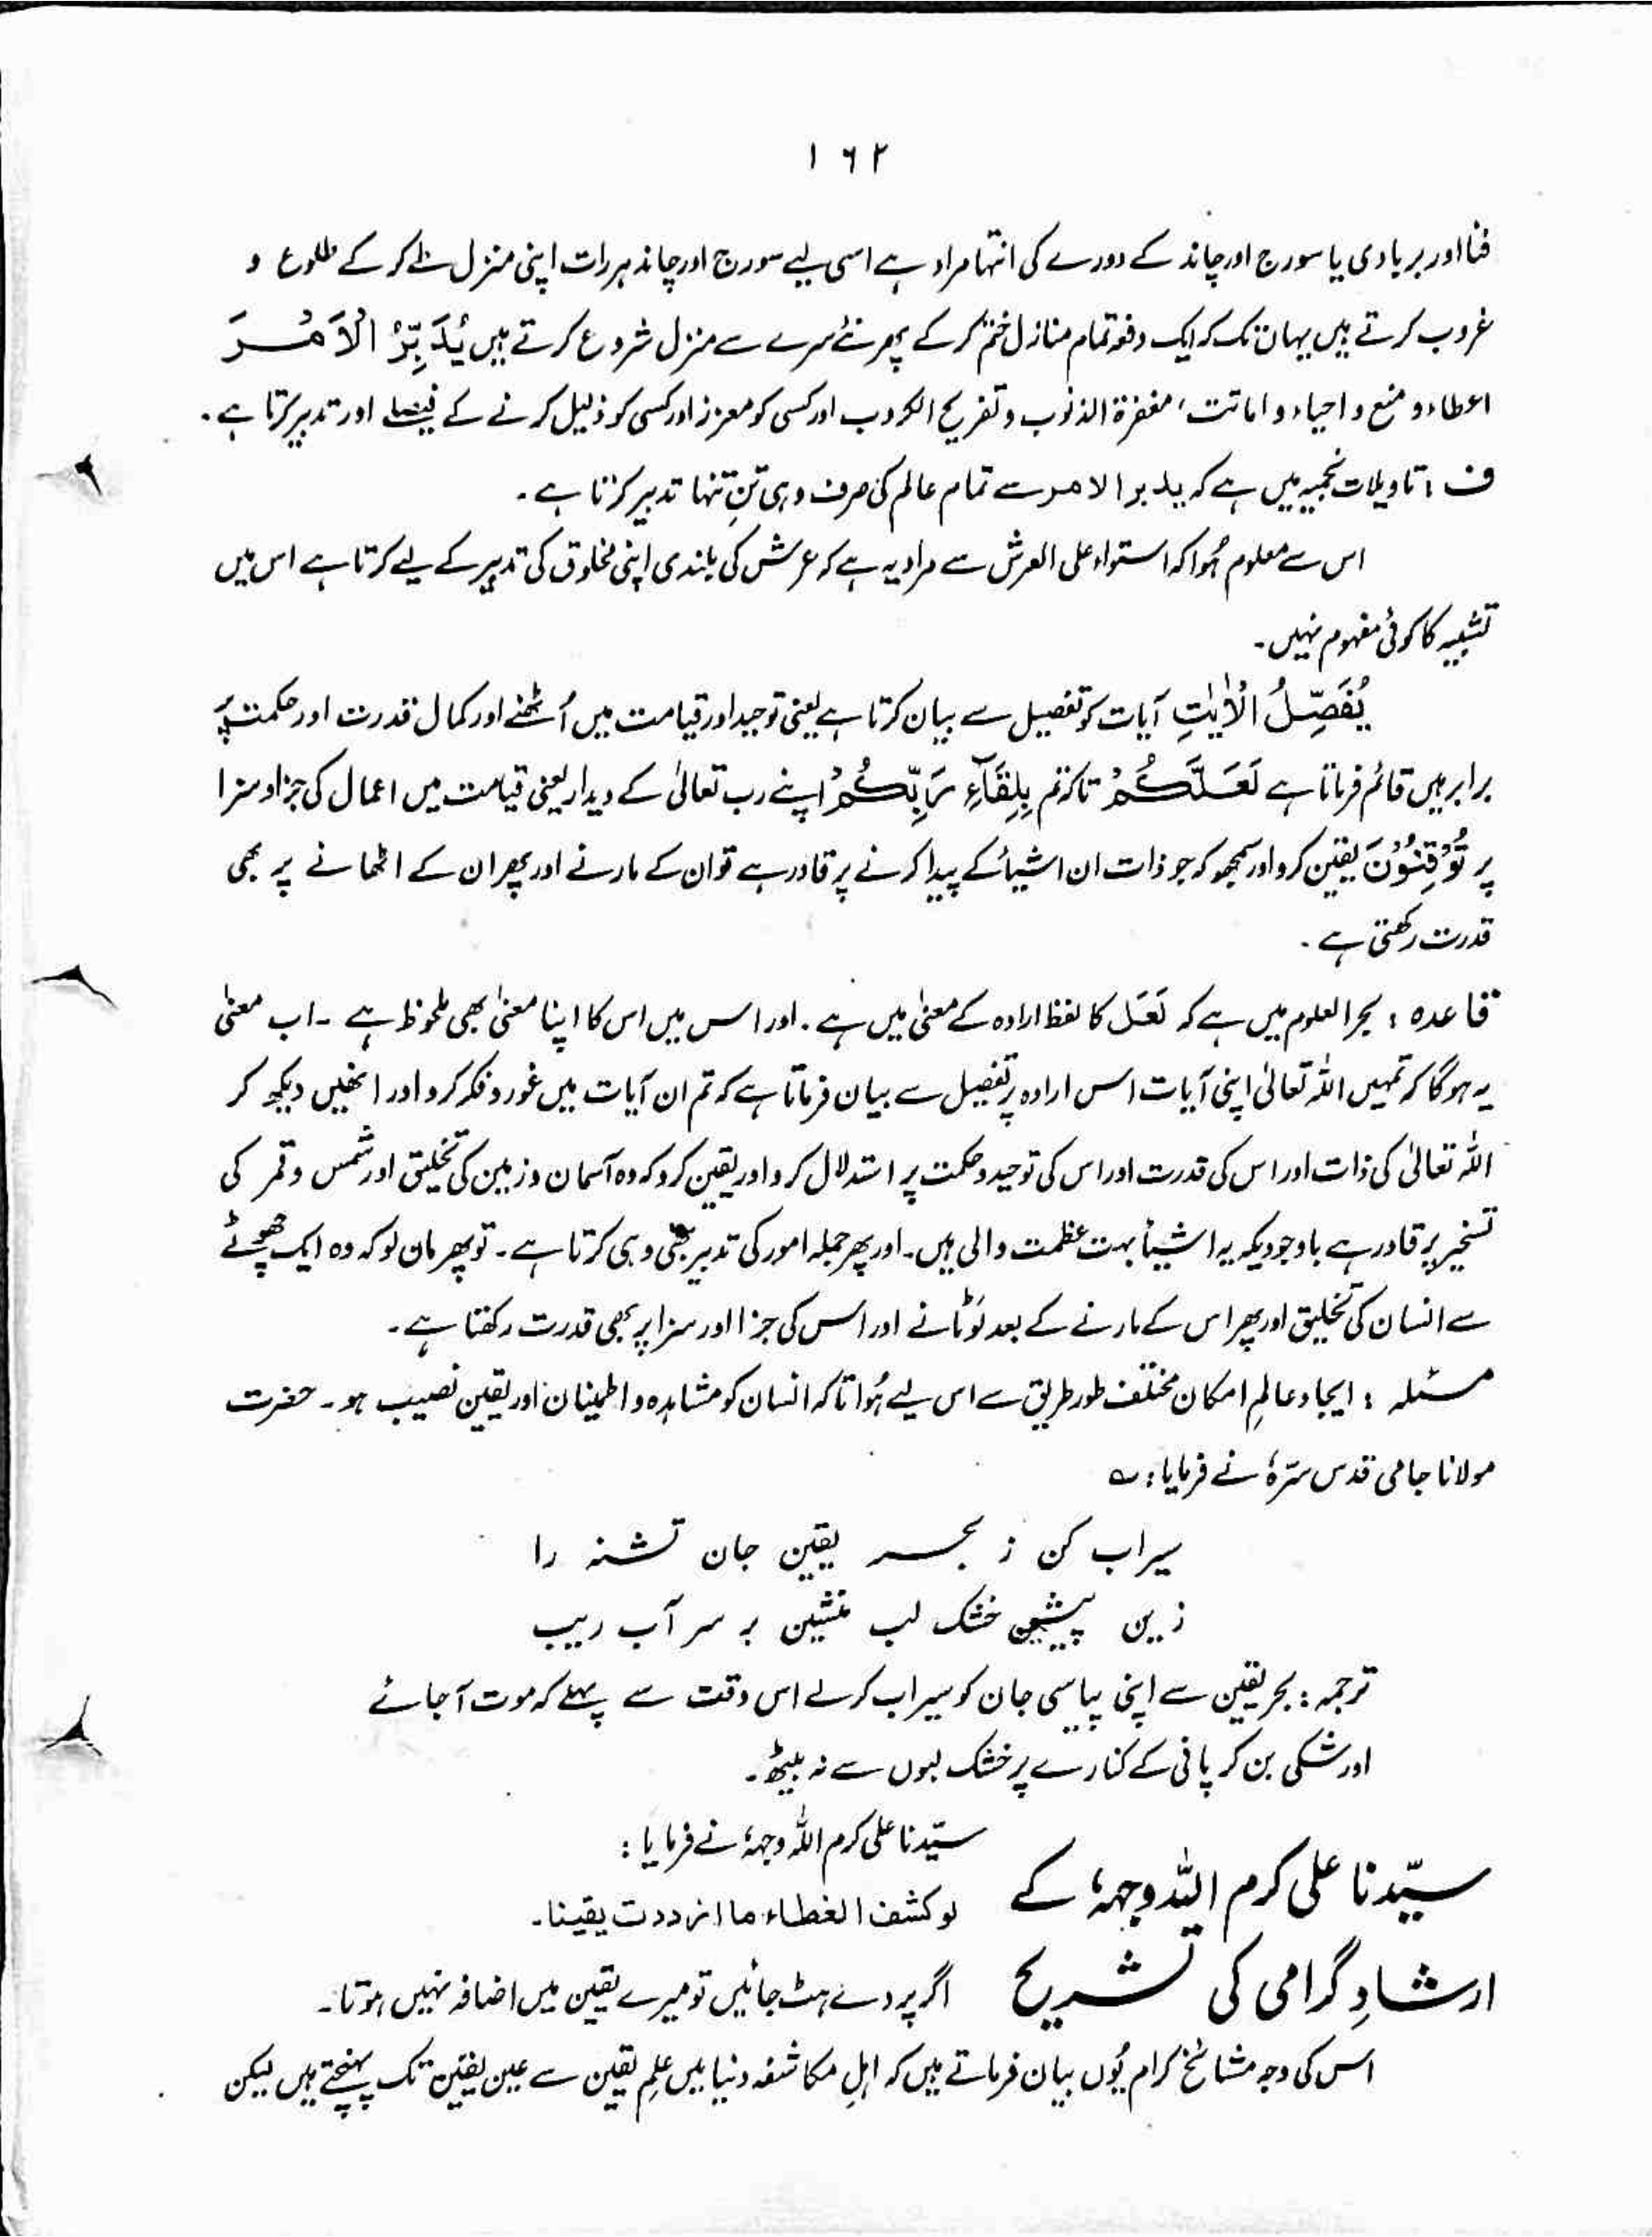 ۱۶۲
فنا اور بربادی یا سورج اور چاند کے دورے کی انتہا مراد ہے اسی لیے سورج اور چاند ہر رات اپنی منزل طے کر کے طلوع و
غروب کرتے ہیں یہاں تک کہ ایک دفعہ تمام منازل ختم کر کے پھر نئے سرے سے منزل شروع کرتے ہیں یُدَبِّرُ الْاَمْرَ
اعطاء و منع و احیاء و اماتت، مغفرۃ الذنوب و تفریح الکروب اور کسی کو معزز اور کسی کو ذلیل کرنے کے فیصلے اور تدبیر کرتا ہے۔
ف : تاویلات نجمیہ میں ہے کہ یدبر الامر سے تمام عالم کی صرف وہی تنِ تنہا تدبیر کرتا ہے۔
اس سے معلوم ہُوا کہ استواء علی العرش سے مراد یہ ہے کہ عرش کی بلندی اپنی مخلوق کی تدبیر کے لیے کرتا ہے اس میں
تشبیہ کا کوئی مفہوم نہیں۔
یُفَصِّلُ الْاٰیٰتِ آیات کو تفصیل سے بیان کرتا ہے یعنی توحید اور قیامت میں اُٹھنے اور کمال قدرت اور حکمت پر
براہین قائم فرماتا ہے لَعَلَّکُمْ تاکہ تم بِلِقَآءِ رَبِّکُمْ اپنے رب تعالیٰ کے دیدار یعنی قیامت میں اعمال کی جزا و سزا
پر تُوْقِنُوْنَ یقین کرو اور سمجھو کہ جو ذات ان اشیأ کے پیدا کرنے پر قادر ہے تو ان کے مارنے اور پھر ان کے اٹھانے پر بھی
قدرت رکھتی ہے۔
قاعدہ : بحر العلوم میں ہے کہ لَعَلَ کا لفظ ارادہ کے معنٰی میں ہے۔ اور اس میں اس کا اپنا معنٰی بھی ملحوظ ہے ۔ اب معنٰی
یہ ہوگا کہ تمہیں اللہ تعالیٰ اپنی آیات اس ارادہ پر تفصیل سے بیان فرماتا ہے کہ تم ان آیات میں غور و فکر کرو اور انھیں دیکھ کر
اللہ تعالیٰ کی ذات اور اس کی قدرت اور اس کی توحید و حکمت پر استدلال کرو اور یقین کرو کہ وہ آسمان و زمین کی تخلیق اور شمس و قمر کی
تسخیر پر قادر ہے باوجودیکہ یہ اشیأ بہت عظمت والی ہیں۔ اور پھر جملہ امور کی تدبیر بھی وہی کرتا ہے۔ تو پھر مان لو کہ وہ ایک چھوٹے
سے انسان کی تخلیق اور پھر اس کے مارنے کے بعد لَوٹانے اور اس کی جزا اور سزا پر بھی قدرت رکھتا ہے۔
مسئلہ : ایجاد عالمِ امکان مختلف طور طریق سے اس لیے ہُوا تاکہ انسان کو مشاہدہ و اطمینان اور یقین نصیب ہو۔ حضرت
مولانا جامی قدس سرّہٗ نے فرمایا: ؎
سیراب کن ز بحر یقین جان تشنہ را
زین پیش خشک لب منشین بر سر آب ریب
ترجمہ : بحر یقین سے اپنی پیاسی جان کو سیراب کرلے اس وقت سے پہلے کہ موت آ جائے
اور شکی بن کر پانی کے کنارے پر خشک لبوں سے نہ بیٹھ۔
سیّدنا علی کرم اللہ وجہہٗ کے
ارشادِ گرامی کی تشریح
سیّدنا علی کرم اللہ وجہہٗ نے فرمایا :
لو کشف الغطاء ما ازددت یقینا۔
اگر پردے ہٹ جائیں تو میرے یقین میں اضافہ نہیں ہوتا۔
اس کی وجہ مشائخ کرام یُوں بیان فرماتے ہیں کہ اہلِ مکاشفہ دنیا میں علمِ یقین سے عین یقین تک پہنچتے ہیں لیکن